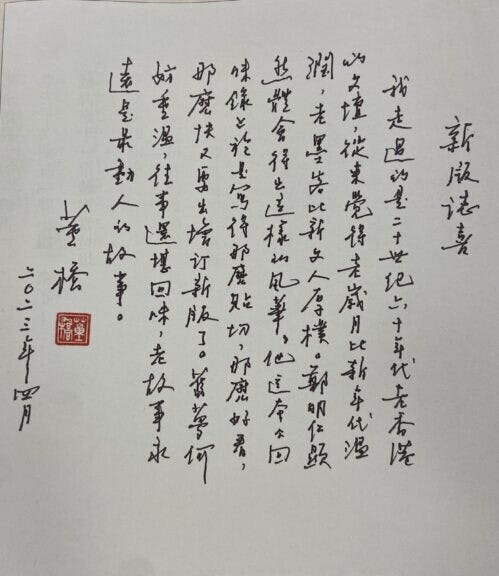 新版誌喜
我走過的是二十世紀六十年代老香港
的文壇，從來覺得老歲月比新年代溫
潤，老墨客比新文人厚樸。鄭明仁顯
然體會得出這樣的風華，他這本《回
味錄》於是寫得那麼貼切，那麼好看，
那麼快又要出增訂新版了。舊夢何
妨重溫，往事還堪回味，老故事永
遠是最動人的故事。
董橋
董橋
二〇二三年四月